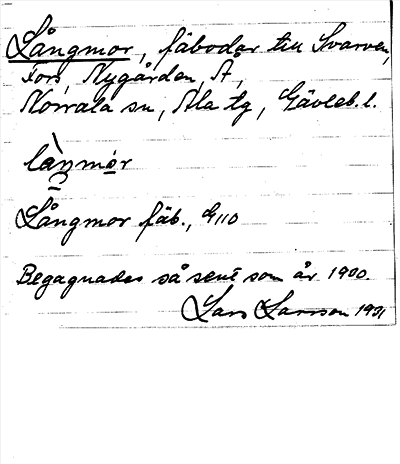 Långmor, fäbodar till Svarven,
Fors, Nygården, Å,
Norrala sn, Ala tg, Gävleb. l.
Långmor fäb., G110
Begagnades så sent som år 1900.
Lars Larsson 1931